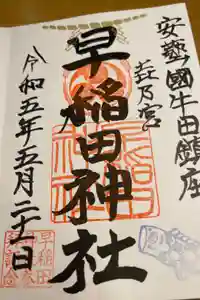 安藝國牛田鎮座
㐂乃宮
早稲田神社
令和五年五月二十一日
早稲田